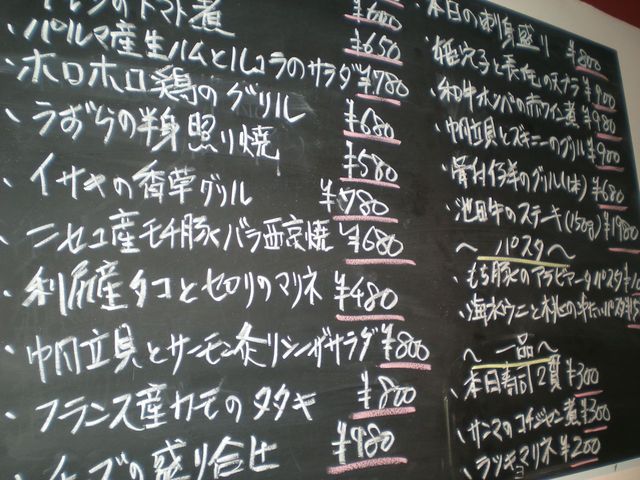 のトマト煮 ¥600
・パルマ産生ハムとルッコラのサラダ ¥780
¥650
・ホロホロ鶏のグリル ¥680
・うずらの半身照り焼 ¥580
・イサキの香草グリル ¥780
・ニセコ産モチ豚バラ西京焼 ¥680
・利尻産タコとセロリのマリネ ¥480
・帆立貝とサーモン炙りシーザサラダ ¥800
・フランス産カモのタタキ ¥800
・チーズの盛り合せ ¥980
・本日の刺身盛り ¥800
天ぷら ¥900
・和牛ホホの赤ワイン煮 ¥980
・帆立貝とズッキーニのグリル ¥900
・骨付仔羊のグリル(1本) ¥680
・池田牛のステーキ(150g) ¥1980
〜 パスタ 〜
・もち豚のアラビアータパスタ
・海水ウニと の冷たいパスタ
〜 一品 〜
・本日寿司2貫 ¥300
・サンマのコチュジャン煮 ¥300
・ラッキョマリネ ¥200